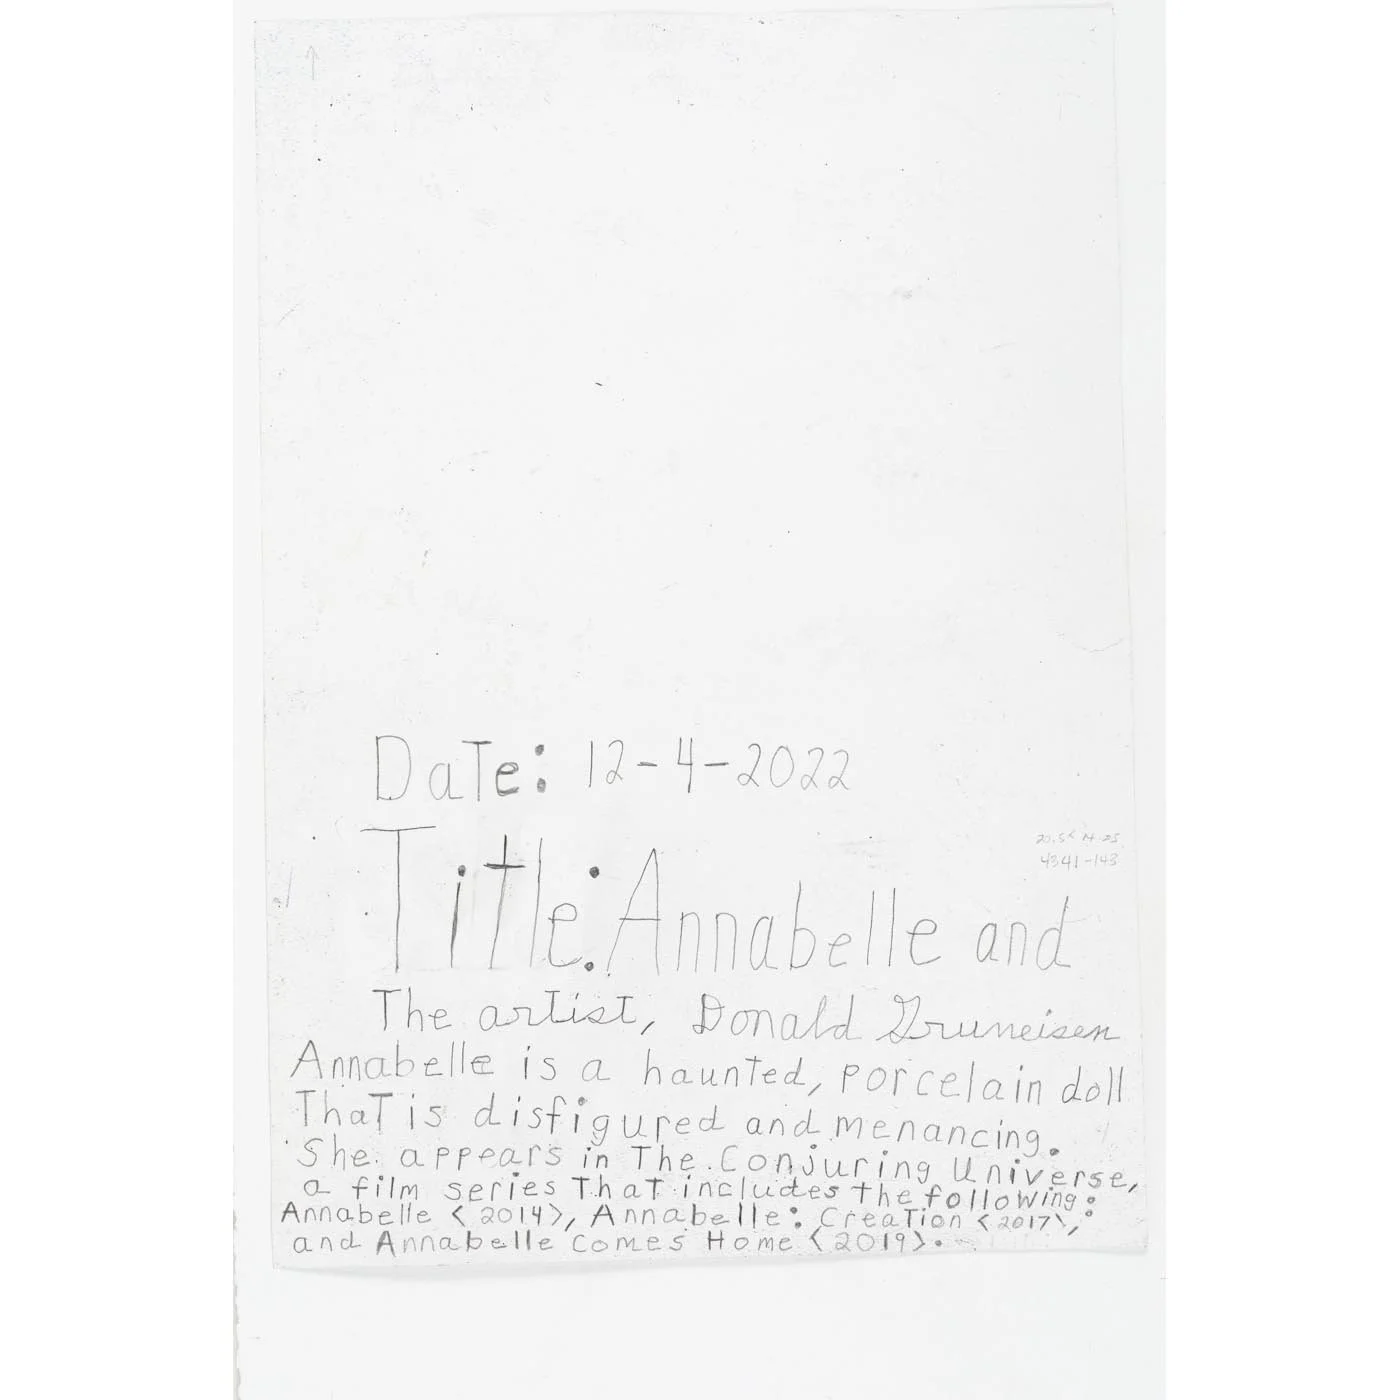 Date: 12-4-2022
Title: Annabelle and
The artist, Donald Gruneisen
Annabelle is a haunted, porcelain doll
That is disfigured and menancing.
She appears in The Conjuring Universe,
a film series That includes the following:
Annabelle <2014>, Annabelle: Creation <2017>,
and Annabelle Comes Home <2019>.
4341-143